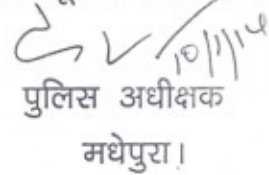 10/1/14
पुलिस अधीक्षक
मधेपुरा।